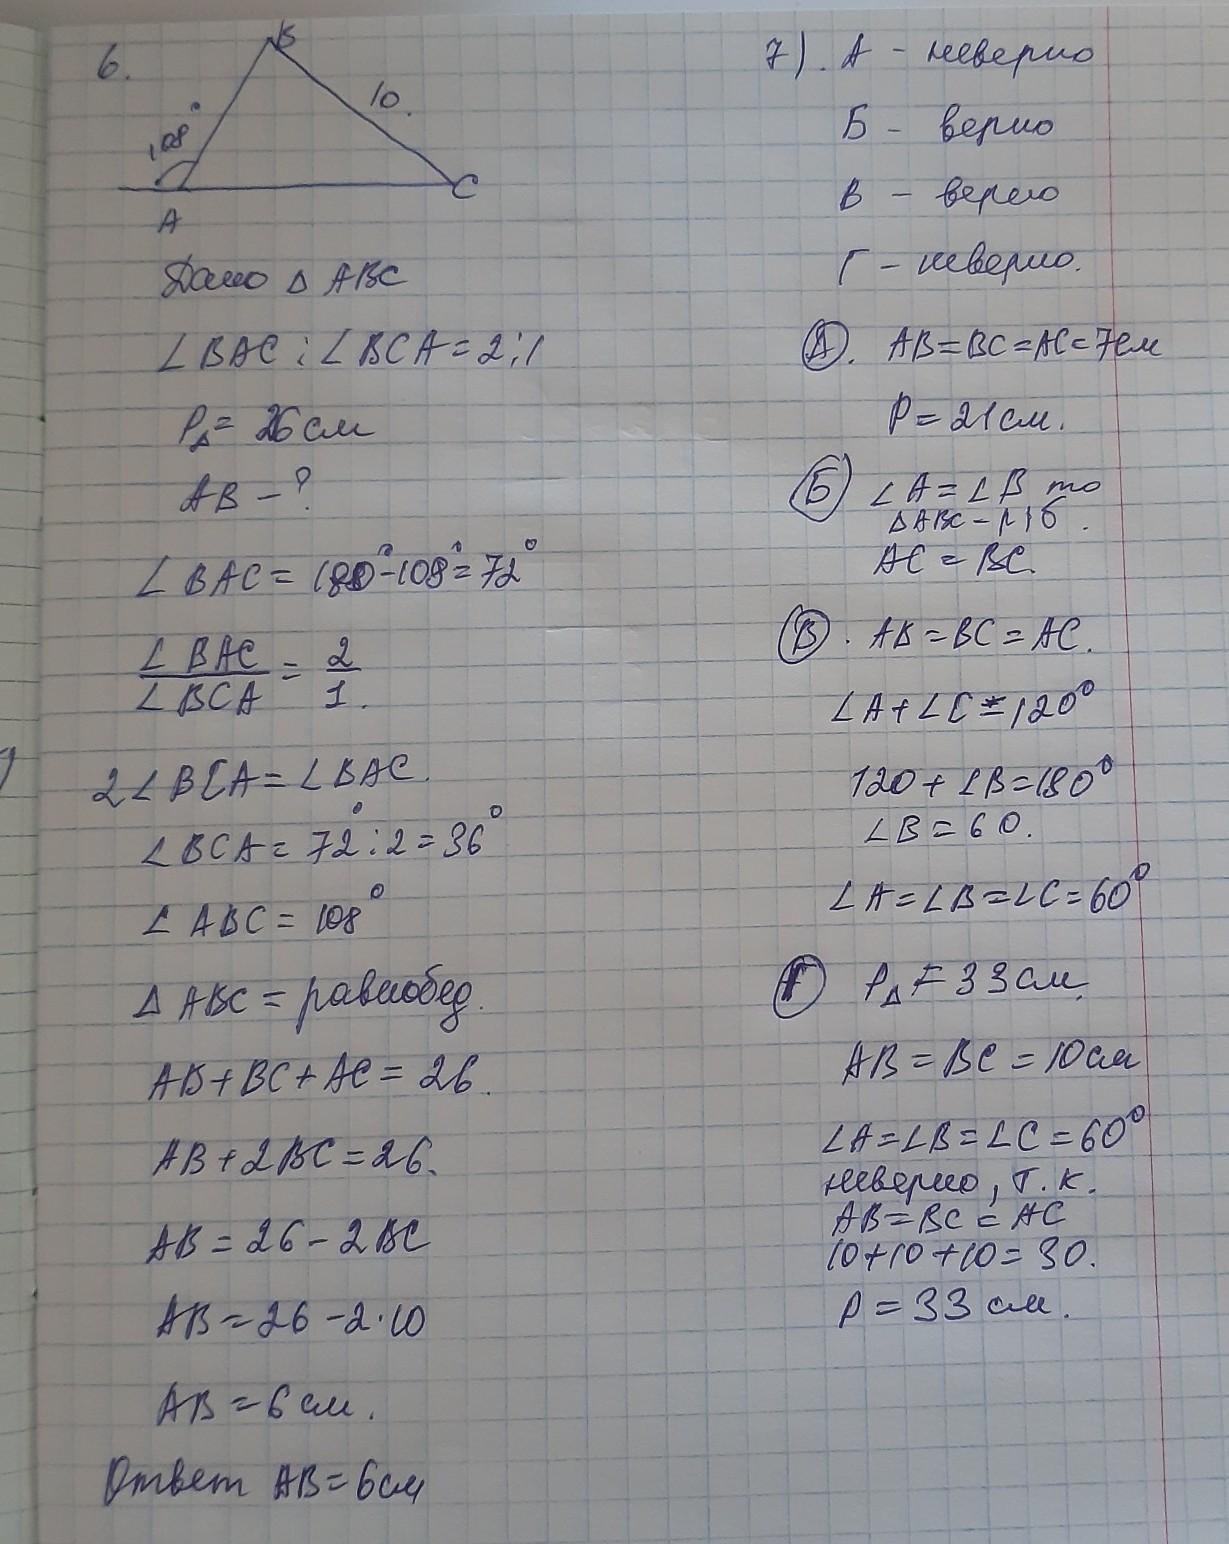 6.
B
10.
108°
A
C
Дано △ ABC
∠BAC : ∠BCA = 2:1
P△ = 26 см
AB - ?
∠BAC = 180° - 108° = 72°
∠BAC / ∠BCA = 2 / 1.
2∠BCA = ∠BAC.
∠BCA = 72° : 2 = 36°
∠ABC = 108°
△ ABC = равнобед.
AB + BC + AC = 26.
AB + 2BC = 26.
AB = 26 - 2BC
AB = 26 - 2·10
AB = 6 см.
Ответ AB = 6 см
7). А - неверно
Б - верно
В - верно
Г - неверно.
А. AB = BC = AC = 7 см
P = 21 см.
Б ∠A = ∠B то
△ABC - р/б.
AC = BC.
В. AB = BC = AC.
∠A + ∠C = 120°
120 + ∠B = 180°
∠B = 60.
∠A = ∠B = ∠C = 60°
Г P△ = 33 см.
AB = BC = 10 см
∠A = ∠B = ∠C = 60°
неверно, т.к.
AB = BC = AC
10 + 10 + 10 = 30.
P = 33 см.